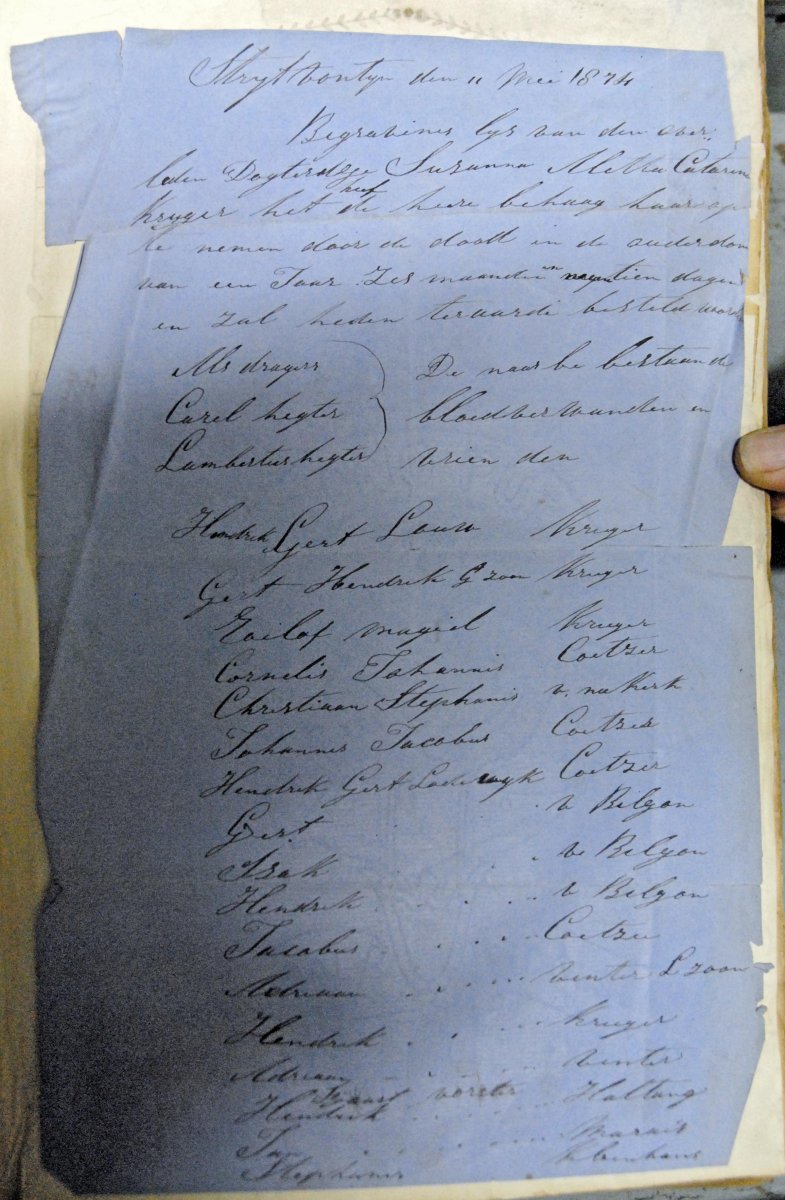 Strytvontyn den 11 Mei 1874
Begravenes lys van den over:
leden Dogter Suzanna Aletta Catarina
Kruger het heef de heere behaag haar op
te nemen door de dood in de ouderdom
van een Jaar Zes maanden en negentien dagen
en zal heden teraarde besteld word
Als dragers De naar be bestaande
Carel hegter bloedverwanden en
Lambertus hegter vrien den
Hendrik Gert Louw Kruger
Gert Hendrik G zoon Kruger
Roilof magiel Kruger
Cornelis Johannis Coetzer
Christiaan Stephanis v. nie Kerk
Johannes Jacobus Coetzer
Hendrik Gert Lodewyk Coetzer
Gert . . . v Bilgon
Izak . . . v Bilgon
Hendrik . . . v Bilgon
Jacobus . . . Coetzee
Adriaan . . . venter L zoon
Hendrik . . . Kruger
Adriaan . . . venter
vorster
Hendrik . . . Hattung
Jan . . . Marais
Stephanus